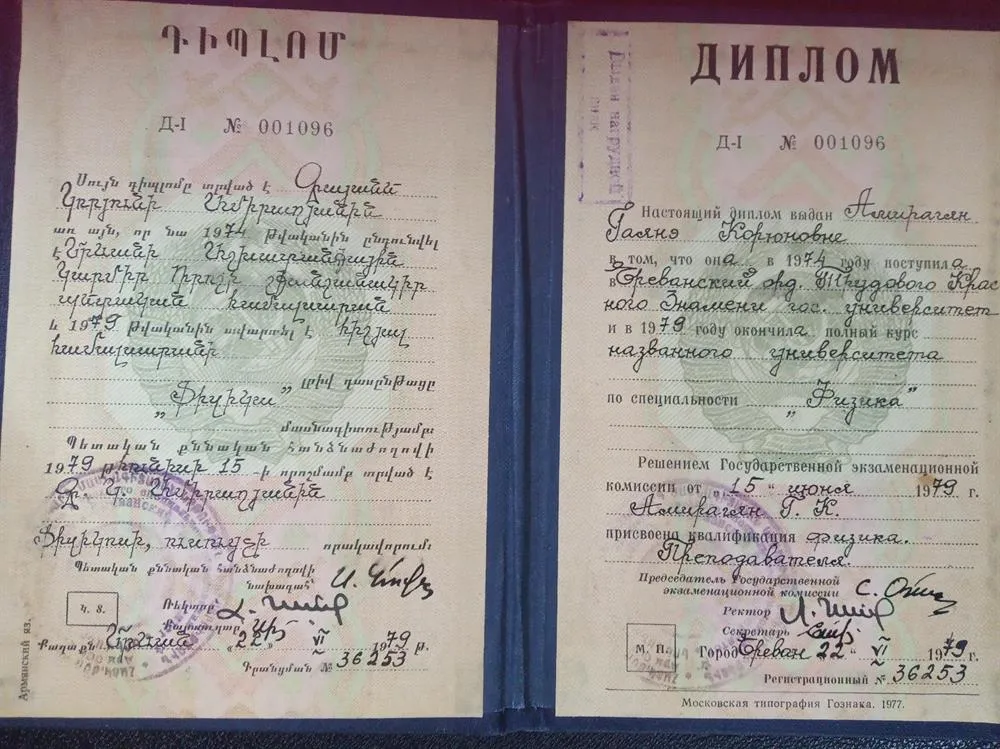 ԴԻՊԼՈՄ
Д-I № 001096
Սույն դիպլոմը տրված է Գայանե
Կորյունի Ամիրաղյանին
առ այն, որ նա 1974 թվականին ընդունվել
է Երևանի Աշխատանքային
Կարմիր Դրոշի շքանշանակիր
պետական համալսարան
և 1979 թվականին ավարտել է հիշյալ
համալսարանի
լրիվ դասընթացը
„Ֆիզիկա”
մասնագիտությամբ:
Պետական քննական հանձնաժողովի
1979 թ. հունիսի 15-ի որոշմամբ տրված է
Գ. Կ. Ամիրաղյանին
Ֆիզիկոսի, ուսուցչի որակավորում:
Պետական քննական հանձնաժողովի
նախագահ՝
Ռեկտոր՝
Կ. Տ.
Քարտուղար՝
Քաղաք Երևան „22” VI 1979 թ.
Գրանցման № 36253
Армянский яз.
ДИПЛОМ
Выдан нагрудный
знак
Д-I № 001096
Настоящий диплом выдан Амирагян
Гаянэ Корюновне
в том, что она в 1974 году поступила
в Ереванский орд. Трудового Крас
ного Знамени гос. университет
и в 1979 году окончила полный курс
названного университета
по специальности „Физика”
Решением Государственной экзаменационной
комиссии от „15” июня 1979 г.
Амирагян Г. К.
присвоена квалификация физика.
Преподавателя.
Председатель Государственной
экзаменационной комиссии
Ректор
Секретарь
М. П. Город Ереван 22 VI 1979 г.
Регистрационный № 36253
Московская типография Гознака. 1977.